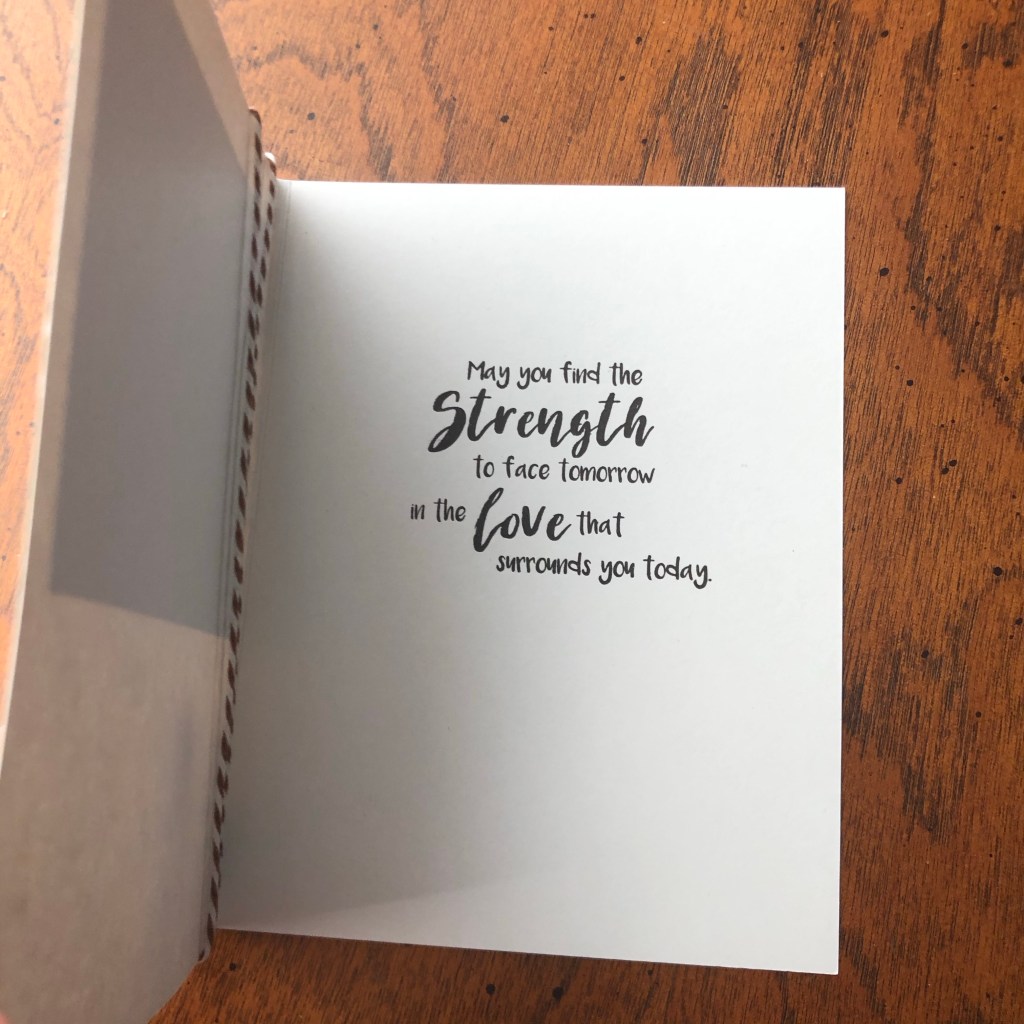 May you find the
Strength
to face tomorrow
in the love that
surrounds you today.